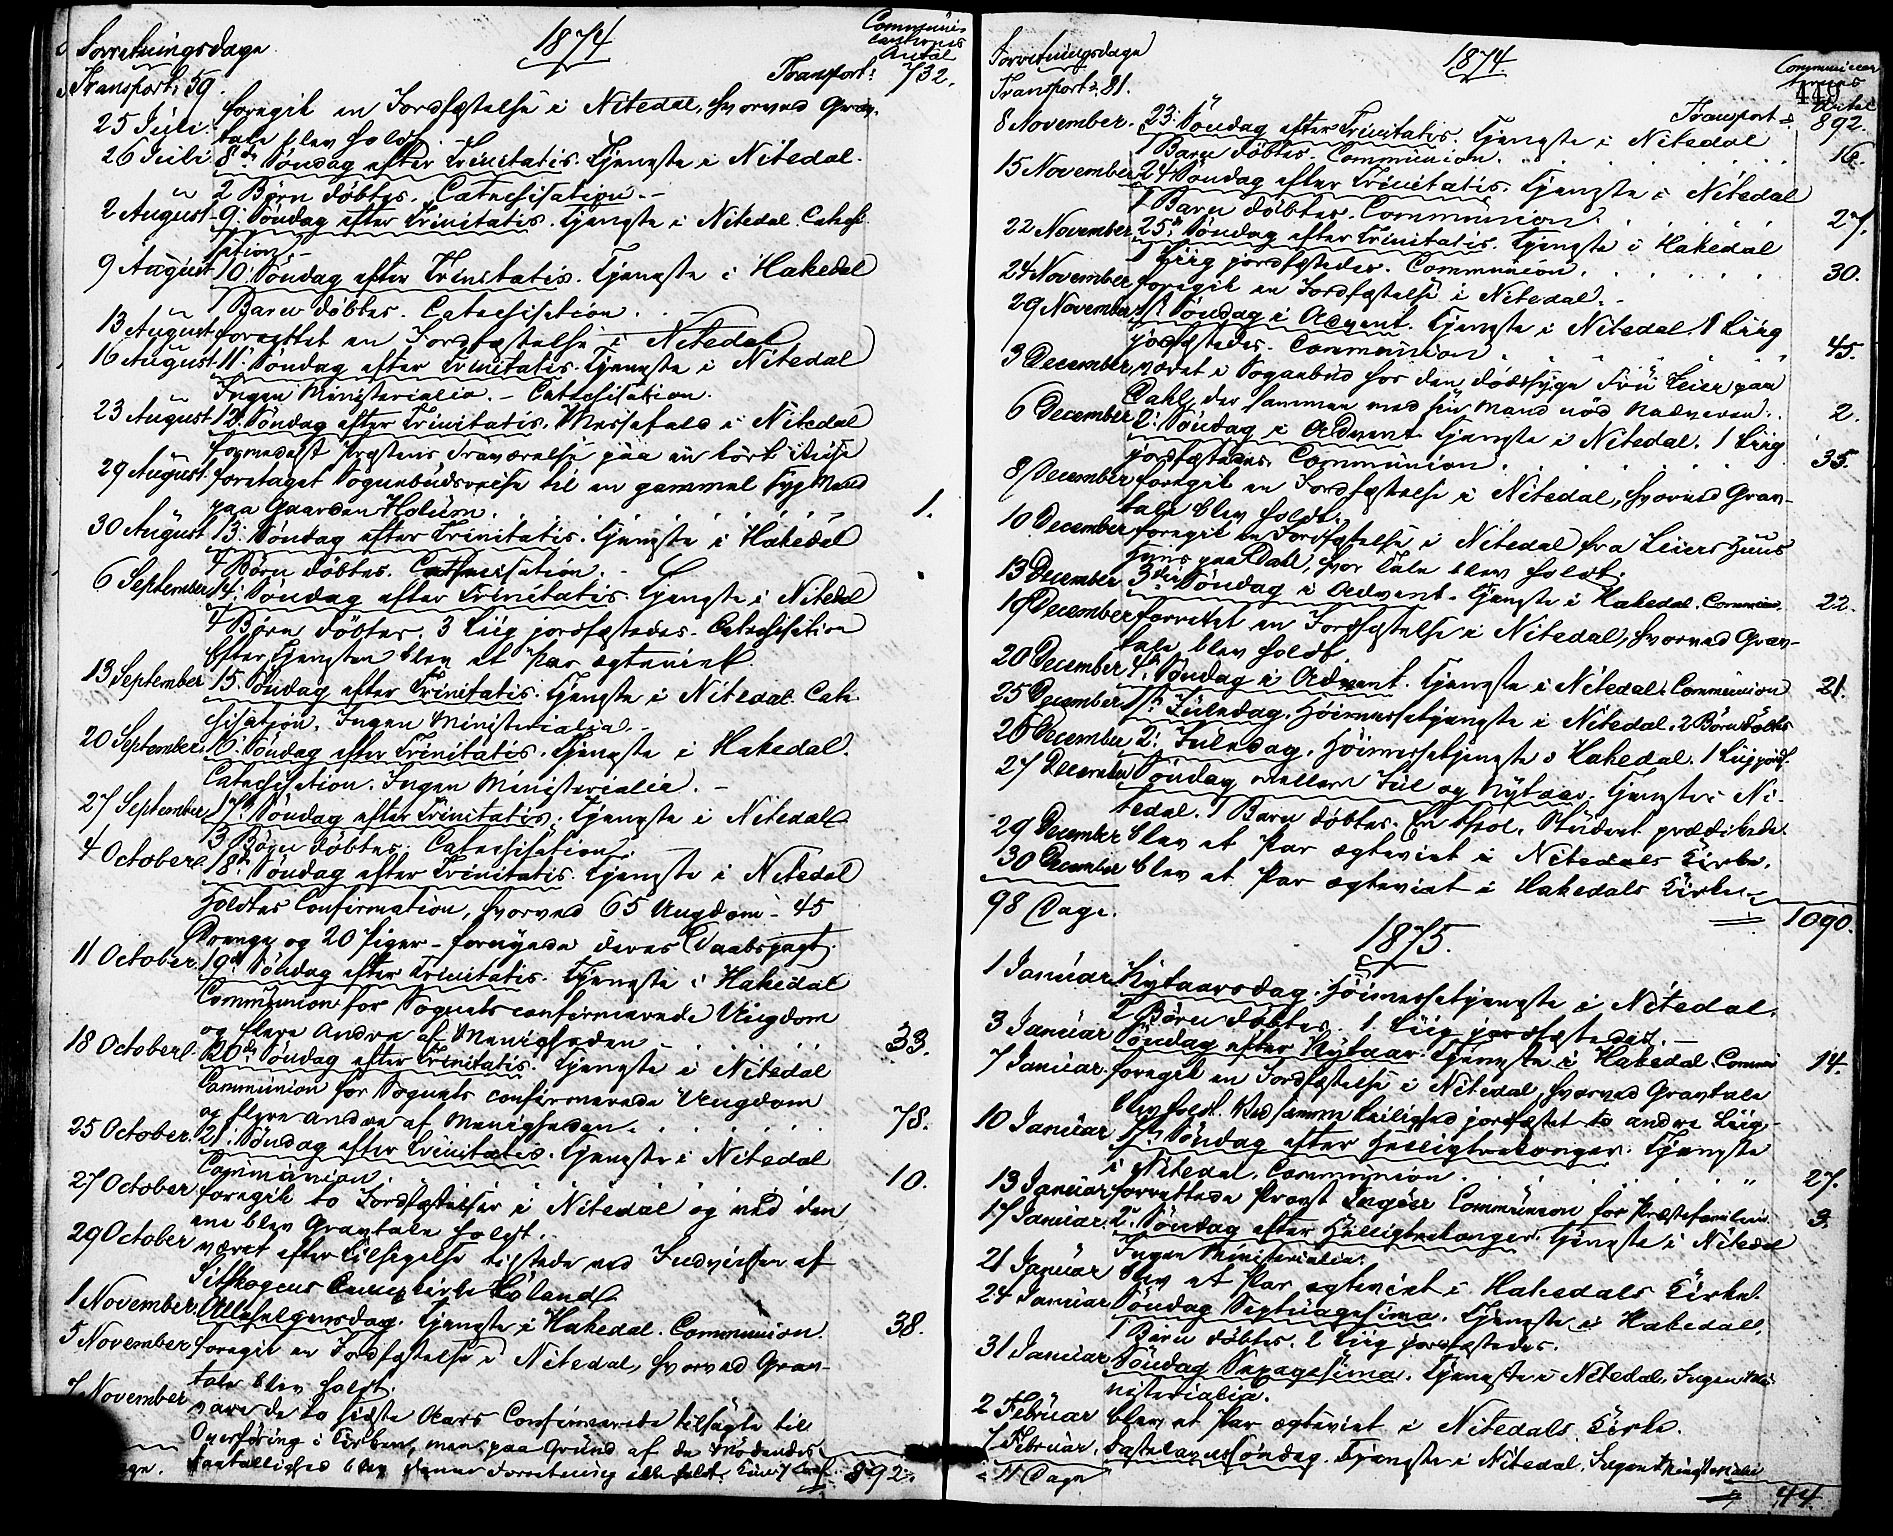 Forretningsdage
1874
Communi-
cantернes
Antal
Transport: 59.
Transport: 732.
25 Juli. foregik en Jordfæstelse i Nitedal, hvorved Grav-
tale blev holdt.
26 Juli 8de Søndag efter Trinitatis. Tjeneste i Nitedal.
2 Børn døbtes. Catechisation. -
2 August 9. Søndag efter Trinitatis. Tjeneste i Nitedal. Catechi-
sation. -
9 August 10. Søndag efter Trinitatis. Tjeneste i Hakedal
1 Barn døbtes. Catechisation.
13 August forrettet en Jordfæstelse i Nitedal
16 August 11. Søndag efter Trinitatis. Tjeneste i Nitedal
Ingen Ministerialia. - Catechisation.
23 August 12. Søndag efter Trinitatis. Messefald i Nitedal
formedelst Præstens Fraværelse paa en kort Reise
29 August. foretaget Sognebudsreise til en gammel syg Mand
paa Gaarden Holum. 1.
30 August 13. Søndag efter Trinitatis. Tjeneste i Hakedal
4 Børn døbtes. Catechisation. -
6 September 14. Søndag efter Trinitatis. Tjeneste i Nitedal
4 Børn døbtes. 3 Liig jordfæstedes. Catechisation
Efter Tjenesten blev et Par ægteviet.
13 September 15. Søndag efter Trinitatis. Tjeneste i Nitedal. Cate-
chisation. Ingen Ministerialia. -
20 September 16. Søndag efter Trinitatis. Tjeneste i Hakedal.
Catechisation. Ingen Ministerialia. -
27 September 17. Søndag efter Trinitatis. Tjeneste i Nitedal
3 Børn døbtes. Catechisation.
4 October. 18. Søndag efter Trinitatis. Tjeneste i Nitedal
Holdtes Confirmation, hvorved 65 Ungdom - 45
Drenge og 20 Piger - fornyede deres Daabspagt.
11 October 19de Søndag efter Trinitatis. Tjeneste i Hakedal
Communion for Sognets confirmerede Ungdom
og flere Andre af Menigheden 33.
18 October. 20de Søndag efter Trinitatis. Tjeneste i Nitedal
Communion for Sognets confirmerede Ungdom
og flere andre af Menigheden. 78.
25 October. 21. Søndag efter Trinitatis. Tjeneste i Nitedal
Communion. 10.
27 October foregik to Jordfæstelser i Nitedal og ved den
ene blev Gravtale holdt.
29 October været efter Tilsigelse tilstede ved Indvielsen af
Sitskogens Kirke Høland.
1 November. Allehelgensdag. Tjeneste i Hakedal. Communion. 38.
5 November foregik en Jordfæstelse i Nitedal, hvorved Grav-
tale blev holdt.
7 November vare de to sidste Aars Confirmerede tilsagte til
Overhøring i Kirken, men paa Grund af de Mødendes
Faatallighed blev denne Forretning ikke holdt. 892.
Forretningsdage
1874
Antal
449
Transport: 81.
Transport: 892.
8 November. 23. Søndag efter Trinitatis. Tjeneste i Nitedal
1 Barn døbtes. Communion. 16.
15 November 24. Søndag efter Trinitatis. Tjeneste i Nitedal
1 Barn døbtes. Communion. 27.
22 November 25. Søndag efter Trinitatis. Tjeneste i Hakedal
1 Liig jordfæstedes. Communion. 30.
24 November foregik en Jordfæstelse i Nitedal. -
29 November 1ste Søndag i Advent. Tjeneste i Nitedal. 1 Liig
jordfæstedes. Communion 45.
3 December, været i Sognebud hos den dødssyge Fru Leier paa
Dahl, der sammen med sin Mand nød Nadveren. 2.
6 December 2. Søndag i Advent Tjeneste i Nitedal. 1 Liig
jordfæstedes. Communion. 35.
8 December foregik en Jordfæstelse i Nitedal, hvorved Grav-
tale blev holdt.
10 December foregik en Jordfæstelse i Nitedal fra Leiers Huus
paa Dahl, hvor Tale blev holdt.
13 December 3die Søndag i Advent. Tjeneste i Hakedal. Commun. 22.
19 December forrettet en Jordfæstelse i Nitedal, hvorved Grav-
tale blev holdt.
20 December 4. Søndag i Advent. Tjeneste i Nitedal. Communion 21.
25 December 1ste Juledag. Høimessetjeneste i Nitedal. 2 Børn døbtes
26 December 2. Juledag. Høimessetjeneste i Hakedal. 1 Liig jordf.
27 December Søndag mellem Jul og Nytaar. Tjeneste i Ni-
tedal. 1 Barn døbtes. En theol. Student prædikede.
29 December blev et Par ægteviet i Nitedals Kirke.
30 December blev et Par ægteviet i Hakedals Kirke.
98 Dage. 1090.
1875.
1 Januar Nytaarsdag. Høimessetjeneste i Nitedal.
2 Børn døbtes. 1 Liig jordfæstedes. -
3 Januar Søndag efter Nytaar. Tjeneste i Hakedal. Commu 14.
7 Januar. foregik en Jordfæstelse i Nitedal, hvorved Gravtale
blev holdt. Ved samme Leilighed jordfæstet to andre Liig
10 Januar 1ste Søndag efter Helligtrekonger. Tjeneste
i Nitedal. Communion. 27.
13 Januar forrettede Provst Communion for Præstefamilien 3.
17 Januar. 2. Søndag efter Helligtrekonger. Tjeneste i Nitedal
Ingen Ministerialia.
21 Januar blev et Par ægteviet i Hakedals Kirke.
24 Januar Søndag Septuagesima. Tjeneste i Hakedal.
1 Barn døbtes. 2 Liig jordfæstedes.
31 Januar Søndag Sexagesima. Tjeneste i Nitedal. Ingen Mi-
nisterialia.
2 Februar blev et Par ægteviet i Nitedals Kirke.
7 Februar. Fastelavnssøndag. Tjeneste i Nitedal. Ingen Ministerialia
11 Dage 44.